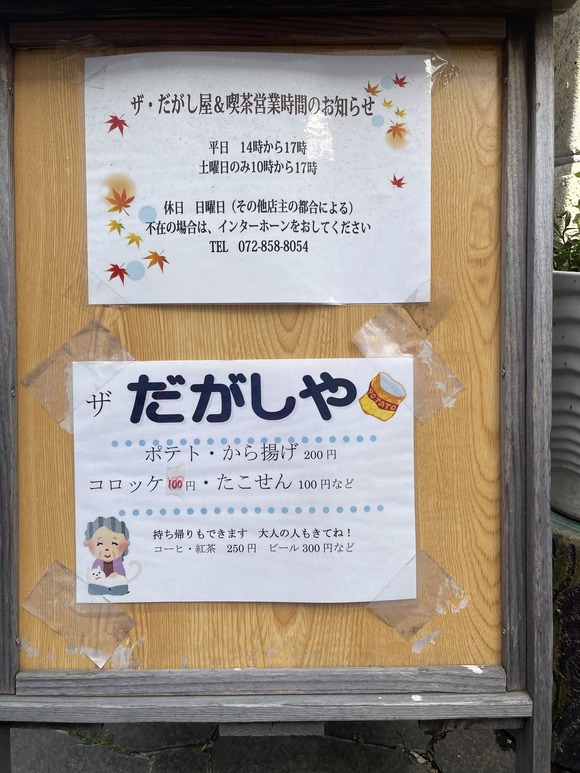 ザ・だがし屋＆喫茶営業時間のお知らせ
平日　14時から17時
土曜日のみ10時から17時
休日　日曜日（その他店主の都合による）
不在の場合は、インターホーンをおしてください
TEL　072-858-8054
ザ だがしや
POTATO
ポテト・から揚げ 200円
コロッケ 100円・たこせん 100円など
持ち帰りもできます　大人の人もきてね！
コーヒ・紅茶　250円　ビール300円など